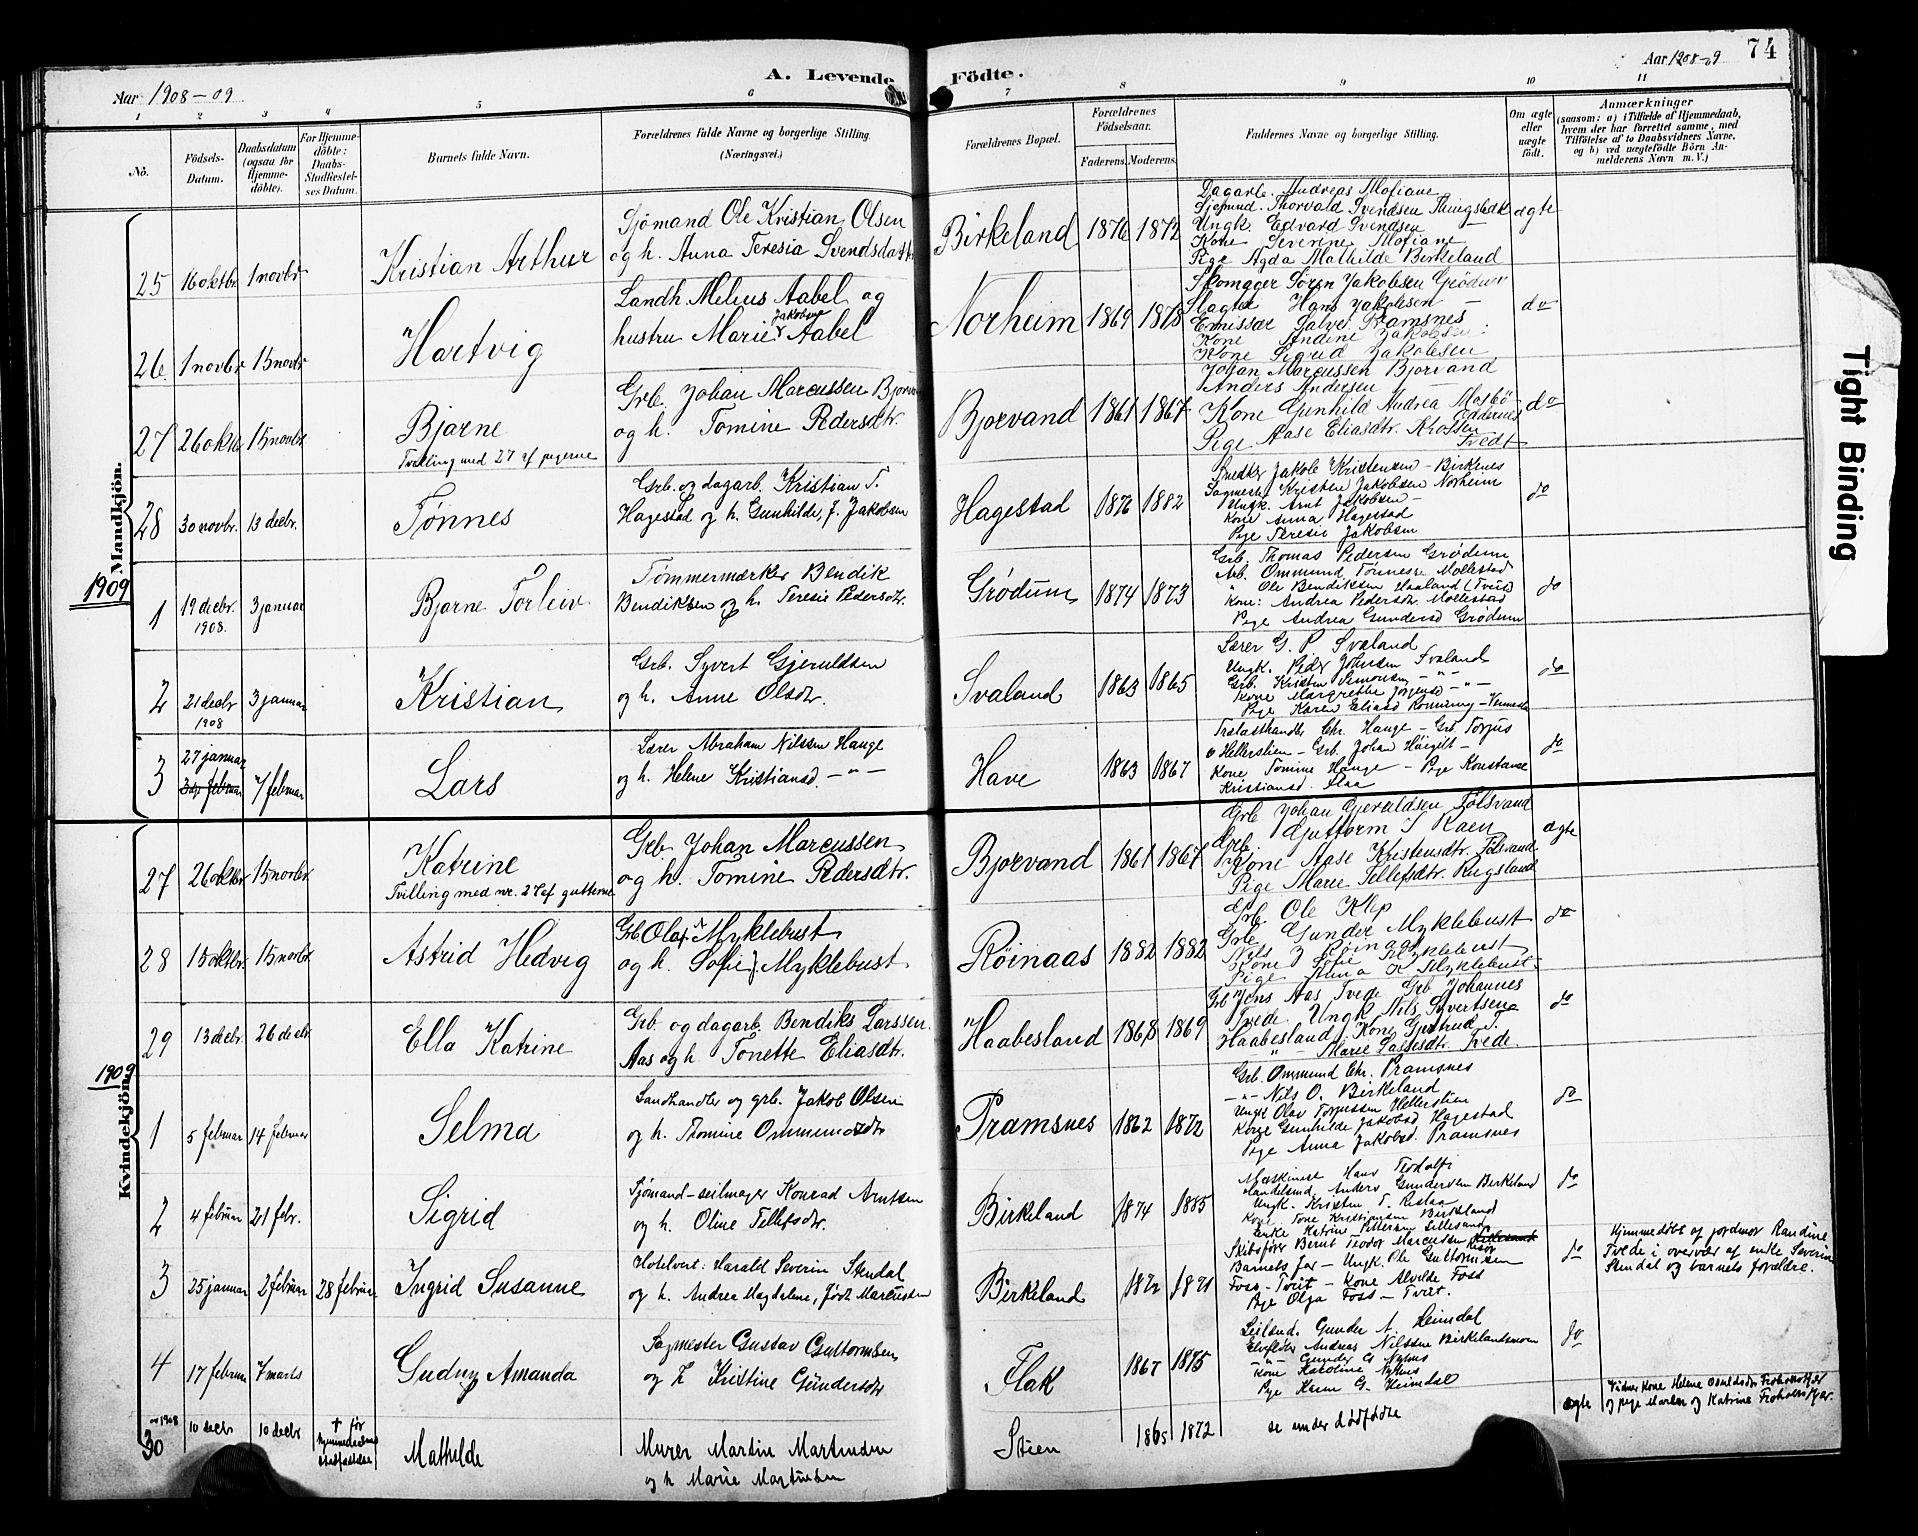 Aar 1908-09
A. Levende Födte.
Aar 1908-09
74
1 2 3 4 5 6 7 8 9 10 11
No.
Födsels-Datum.
Daabsdatum (ogsaa for Hjemme-döbte).
For Hjemme-döbte: Daabs-Stadfæstel-ses Datum.
Barnets fulde Navn.
Forældrenes fulde Navne og borgerlige Stilling.
(Næringsvei.)
Forældrenes Bopæl.
Forældrenes Födselsaar.
Faderens. Moderens.
Faddernes Navne og borgerlige Stilling.
Om ægte eller uægte födt.
Anmærkninger
(saasom: a) i Tilfælde af Hjemmedaab, hvem der har forrettet samme, med Tilföielse af to Daabsvidners Navne, og b) ved uægtefödte Börn An-melderens Navn m. V.)
Mandkjön.
25 16 oktbr. 1 novbr Kristian Arthur
Sjømand Ole Kristian Olsen
og h. Anna Teresia Svendsdatt
Birkeland 1876 1872
Dagarb. Andreas Mofiane
Thorvald Svendsen
Ungk. Edvard Svendsen
Kone Severine Mofiane
Pige Agda Mathilde Birkeland
ægte
26. 1 novbr 15 novbr Hartvig
Landh. Melius Aabel og
hustru Marie Jakobine Aabel
Norheim 1869 1878
Skomager Søren Jakobsen Grødum
Slagter Hans Jakobsen —
Emissær Salve Pramsnes
Kone Andine Jakobsen
Kone Sigrid Jakobsen
do
27 26 oktbr 15 novbr Bjarne
Tvilling med 27 af pigerne
Grb. Johan Marcussen Bjorvand
og h. Tomine Pedersdtr.
Bjorvand 1861 1867
Johan Marcussen Bjorvand
Anders Andersen —
Kone Gunhild Andrea Mosbø Oddernes
Pige Aase Eliasdtr. Tvedt
do
28 30 novbr. 13 decbr. Tønnes
Grb. og dagarb. Kristian T.
Hagestad og h. Gunhilde, f. Jakobsen
Hagestad 1876 1882
Snedker Jakob Kristensen — Birkenes
Sagmester Kristen Jakobsen Norheim
Ungk. Arnt Jakobsen —
Kone Anna Hagestad
Pige Teresie Jakobsen
do
1909
1 19 decbr. 1908. 3 januar Bjarne Torleiv
Tømmermærker Bendik
Bendiksen og h. Teresie Pedersdtr.
Grødum 1874 1873
Grb. Thomas Pedersen Grødum
Arb. Ommund Tønnesen Mollestad
" Ole Bendiksen Haaland (Tveid)
Kone: Andrea Pedersdtr. Mollestad
Pige Andrea Gundersd Grødum
do
2 21 decbr 1908 3 januar Kristian
Grb. Syvert Gjeruldsen
og h. Anne Olsdtr.
Svaland 1863 1865
Lærer G. P. Svaland
Ungk. Peder Johnsen Svaland
Grb. Kristen Simonsen — " —
Kone Margrethe Jørgensd — " —
Pige Karen Eliasd — Vennesla
do
3 27 januar 7 februar Lars
Lærer Abraham Nilssen Hauge
og h. Helene Kristiansd. — " —
Have 1863 1867
Trælasthandler Chr. Hauge — Grb. Torjus
Hellerslien — Grb. Johan Høigilt —
Kone Tomine Hauge — Pige Konstanse
Kristiansd. Flaa
do
27 26 oktbr 15 novbr. Katrine
Tvilling med nr. 27 af gutterne
Grb Johan Marcussen
og h. Tomine Pedersdtr.
Bjorvand 1861 1867
Grb Johan Gjeruldsen Følsvand
Grb. Guttorm T Raen
Kone Aase Kristensdtr. Følsvand
Pige Marie Tellefsdtr. Rugsland
ægte
28 15 oktbr. 15 novbr. Astrid Hedvig
Grb Olaf Myklebust
og h. Sofie Myklebust
Røinaas 1882 1882
Grb. Ole Klep
Grb Gunder Myklebust
Nils J Røinaas
Kone Sofie Myklebust
Pige Alma Myklebust
do
29 13 decbr. 26 decbr Ella Katrine
Grb. og dagarb. Bendiks Larssen
Aas og h. Tonette Eliasdtr.
Haabesland 1868 1869
Grb Jens Aas Tvede Grb Johannes
Tvede. Ungk Nils Syvertsen
Haabesland, Kone Gjertrud T.
" — Marie Lassesdtr. Tvede.
do
1909
Kvindekjön.
1 5 februar 14 februar Selma
Landhandler og grb. Jakob Olsen
og h. Thomine Ommundsdtr
Pramsnes 1862 1872
Grb. Ommund Chr. Pramsnes
— " — Nils O. Birkeland
Ungk Olav Torjussen Hellerslien
Kone Gunhilde Jakobsd Hagestad
Pige Anna Jakobsd. Pramsnes
do
2 4 februar 21 febr. Sigrid
Sjømand — seilmager Konrad Arntsen
og h. Oline Tellefsdtr.
Birkeland 1874 1885
Maskinist Hans Teodolfs
Handelsmd Anders Gundersen Birkeland
Ungk. Kristen T. Retlaa
Kone Tone Kristiansen Birkeland
Enke Katrine Pettersen Lillesand
do
3 25 januar 2 februar 28 februar Ingrid Susanne
Hotelvert: Harald Severin Stendal
og h. Andrea Magdalene, født Marcussen
Birkeland 1872 1871
Skibsfører Bernt Teodor Marcussen Risør
Barnets far — Ungk. Ole Guttormsen
Foss — Tveit — Kone Alvilde Foss
Pige Olga Foss — Tveit.
do
Hjemmedøbt af jordmor Randine
Tvede i overvær af enke Severine
Stendal og barnets forældre.
4 17 februar 7 marts Gudny Amanda
Sagmester Gustav Guttormsen
og h Kristine Gundersdtr
Flak 1867 1875
Gunder A. Heimdal
Elvefløder Andreas Nilssen Birkelandsmoen
— " — Gunder G. Nylnes
Kone Karoline Nylnes
Pige Karen G. Heimdal
do
30 1908 10 decbr 10 decbr † før hjemmedaabens stadfæstelse Mathilde
Murer Martin Martinsen
og h Marie Martinsen
Stien 1865 1872
se under dødfødte
ægte
Vidner Kone Helene
og pige Maren og Katrine
Tight Binding